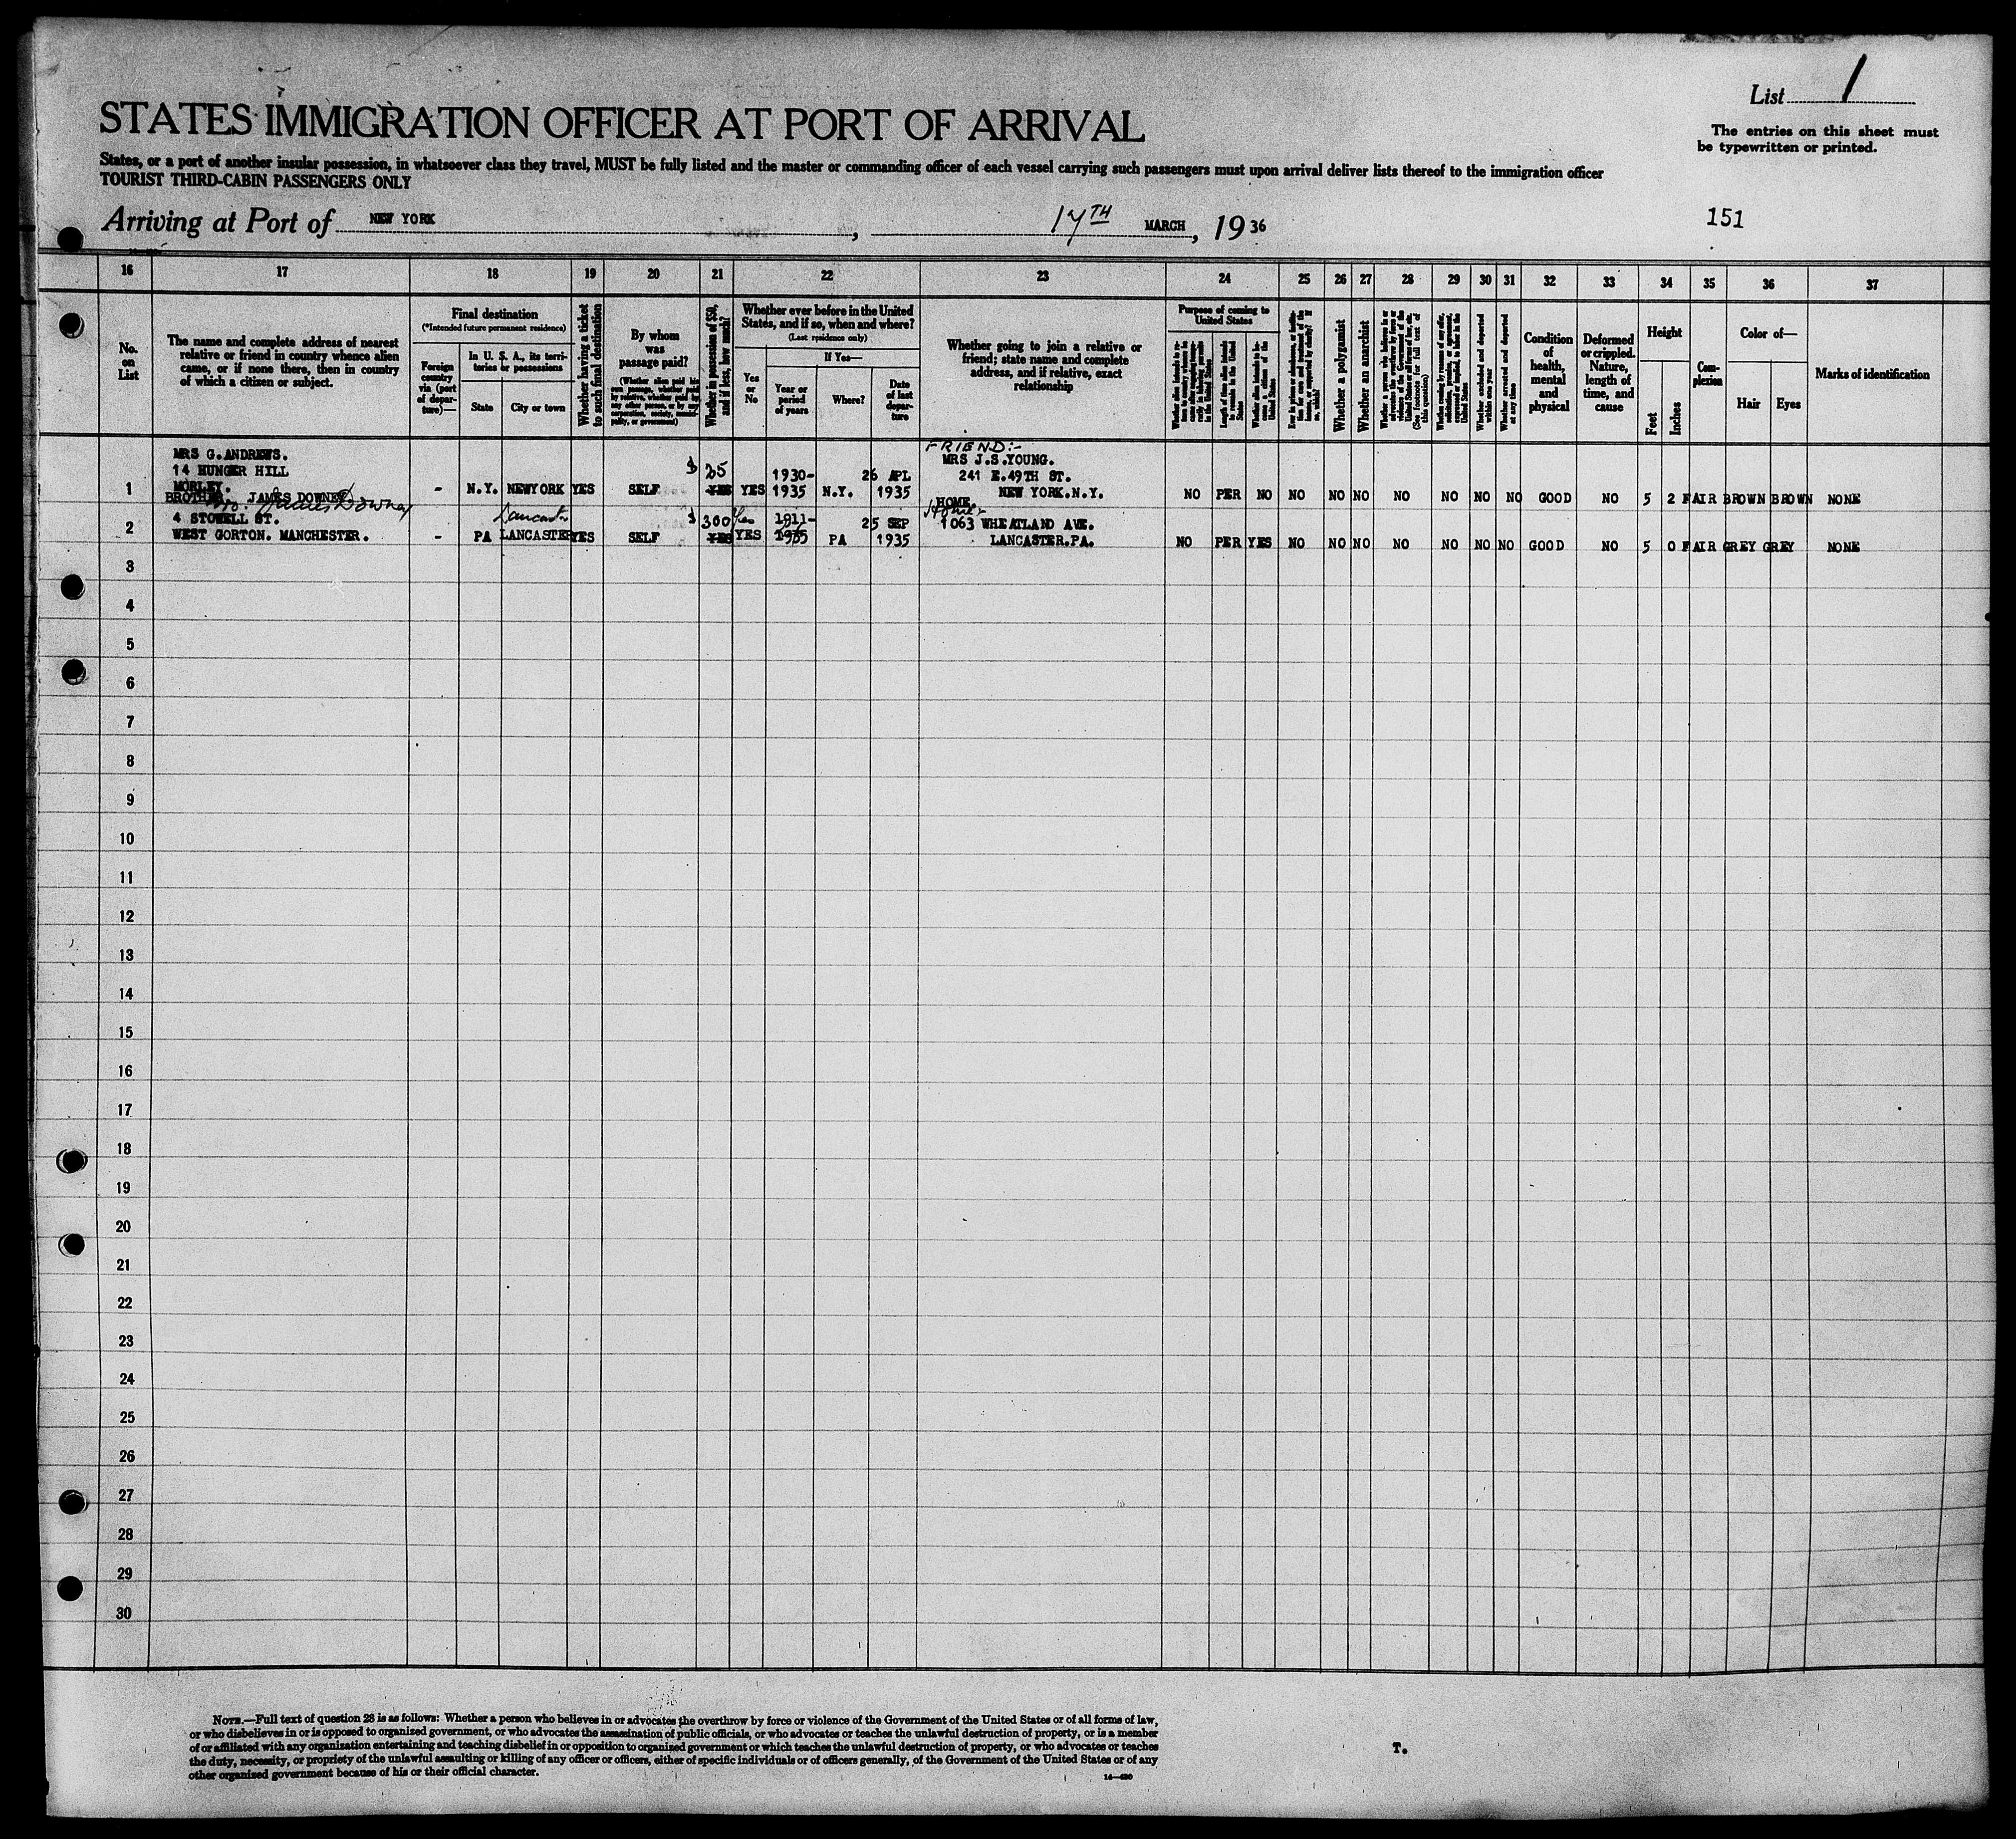 List 1
The entries on this sheet must
be typewritten or printed.
STATES IMMIGRATION OFFICER AT PORT OF ARRIVAL
States, or a port of another insular possession, in whatsoever class they travel, MUST be fully listed and the master or commanding officer of each vessel carrying such passengers must upon arrival deliver lists thereof to the immigration officer
TOURIST THIRD-CABIN PASSENGERS ONLY
Arriving at Port of NEW YORK, 17TH MARCH, 19 36
151
16 17 18 19 20 21 22 23 24 25 26 27 28 29 30 31 32 33 34 35 36 37
No.
on
List
The name and complete address of nearest
relative or friend in country whence alien
came, or if none there, then in country
of which a citizen or subject.
Final destination
(*Intended future permanent residence)
Foreign
country
via (port
of depar-
ture)—
In U. S. A., its terri-
tories or possessions
State
City or town
Whether having a ticket
to such final destination
By whom
was
passage paid?
(Whether alien paid his
own passage, whether paid
by relative, whether paid by
any other person, or by any
corporation, society, munici-
pality, or government)
Whether in possession of $50,
and if less, how much?
Whether ever before in the United
States, and if so, when and where?
(Last residence only)
Yes
or
No
If Yes—
Year or
period
of years
Where?
Date
of last
depar-
ture
Whether going to join a relative or
friend; state name and complete
address, and if relative, exact
relationship
Purpose of coming to
United States
Length of time alien intends
to remain in the United
States
Whether alien intends to be-
come a citizen of the
United States
Whether a polygamist
Whether an anarchist
(See footnote for full text of
this question)
Whether excluded and deported
within one year
Whether arrested and deported
at any time
Condition
of
health,
mental
and
physical
Deformed
or crippled.
Nature,
length of
time, and
cause
Height
Feet
Inches
Com-
plexion
Color of—
Hair
Eyes
Marks of identification
FRIEND:-
MRS G.ANDREWS. MRS J.S.YOUNG.
14 HUNGER HILL $ 25 1930- 26 APL 241 E.49TH ST.
1 MORLEY. - N.Y. NEWYORK YES SELF YES YES 1935 N.Y. 1935 NEW YORK.N.Y. NO PER NO NO NO NO NO NO NO NO GOOD NO 5 2 FAIR BROWN BROWN NONE
BROTHER. JAMES DOWNEY HOME.
Bro: James Downey Lancaster Home:-
2 4 STOWELL ST. $ 300 Yes 1911- 25 SEP 1063 WHEATLAND AVE.
WEST GORTON. MANCHESTER. - PA LANCASTER YES SELF YES YES 1935 PA 1935 LANCASTER.PA. NO PER YES NO NO NO NO NO NO NO GOOD NO 5 0 FAIR GREY GREY NONE
3
4
5
6
7
8
9
10
11
12
13
14
15
16
17
18
19
20
21
22
23
24
25
26
27
28
29
30
NOTE.—Full text of question 28 is as follows: Whether a person who believes in or advocates the overthrow by force or violence of the Government of the United States or of all forms of law,
or who disbelieves in or is opposed to organized government, or who advocates the assassination of public officials, or who advocates or teaches the unlawful destruction of property, or is a member
of or affiliated with any organization entertaining and teaching disbelief in or opposition to organized government or which teaches the unlawful destruction of property, or who advocates or teaches
the duty, necessity, or propriety of the unlawful assaulting or killing of any officer or officers, either of specific individuals or of officers generally, of the Government of the United States or of any
other organized government because of his or their official character.
14—430
T.